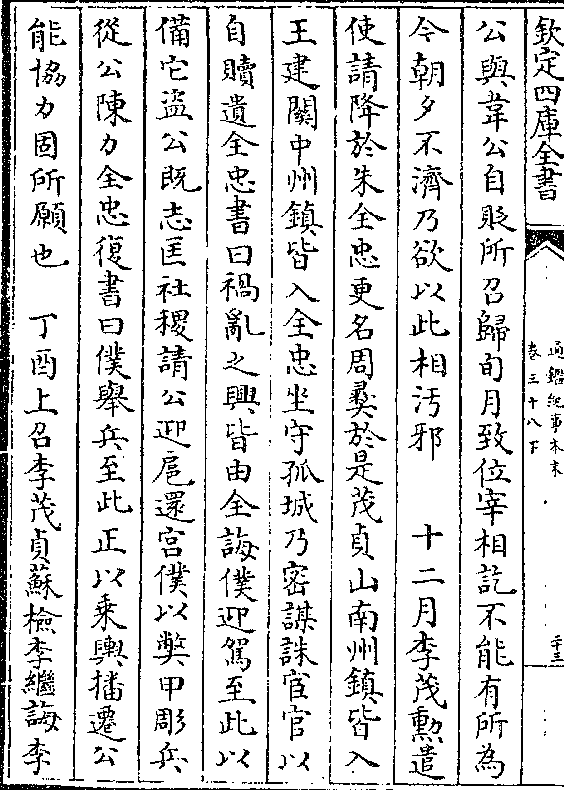 欽定四庫全書
通鑑紀事本末
卷三十八下
二十三
公與韋公自貶所召歸旬月致位宰相訖不能有所為
今朝夕不濟乃欲以此相汚邪　十二月李茂勲遣
使請降於朱全忠更名周彝於是茂貞山南州鎮皆入
王建關中州鎮皆入全忠坐守孤城乃密謀誅宦官以
自贖遺全忠書曰禍亂之興皆由全誨僕迎駕至此以
備它盗公既志匡社稷請公迎扈還宮僕以弊甲彫兵
從公陳力全忠復書曰僕舉兵至此正以乘輿播遷公
能協力固所願也　丁酉上召李茂貞蘇檢李繼誨李